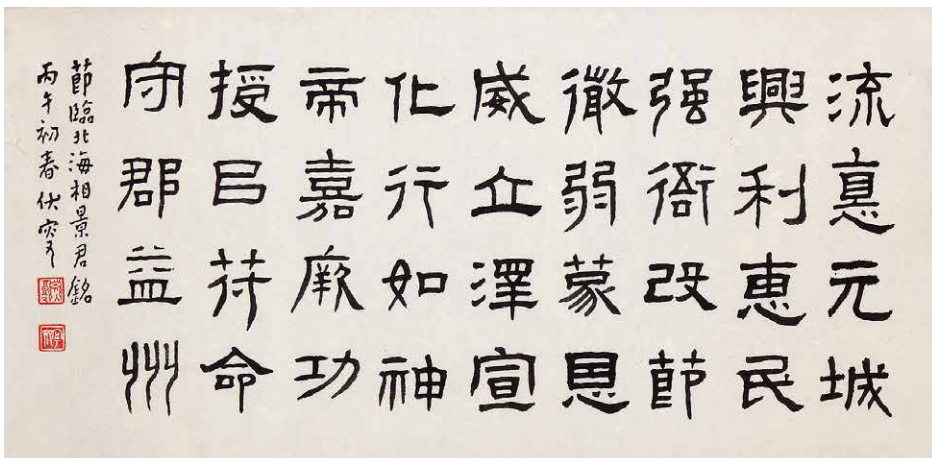 流悳元城
興利惠民
强衙改節
微弱蒙恩
威立澤宣
化行如神
帝嘉厥功
授㠯符命
守郡益州
節臨北海相景君銘
丙午初春伏